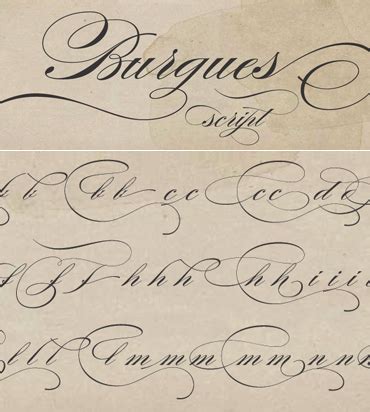 Burgues
script
b b b b c c c c d d
f f f h h h h h i i i i
l l l l m m m m m n n n